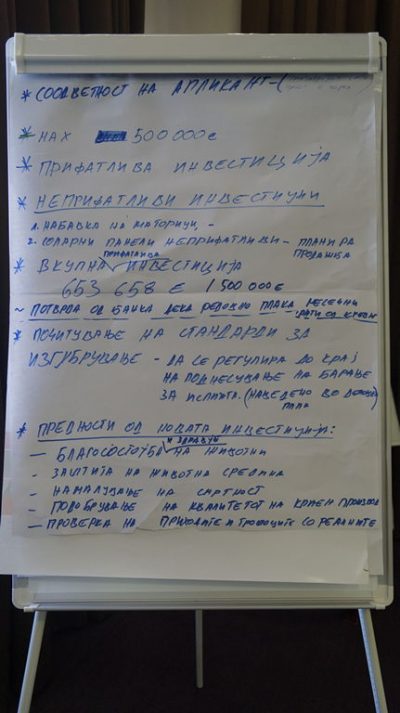 * СООДВЕТНОСТ НА АПЛИКАНТ - (
* МАХ 500 000 €
* ПРИФАТЛИВА ИНВЕСТИЦИЈА
* НЕПРИФАТЛИВИ ИНВЕСТИЦИИ
1. НАБАВКА НА МАТОРИЦИ, -
2. СОЛАРНИ ПАНЕЛИ НЕПРИФАТЛИВИ - ПЛАНИРА
ПРОДАЖБА
ПРИФАТЛИВА
* ВКУПНА ИНВЕСТИЦИЈА
653 658 € 1 500 000 €
~ ПОТВРДА ОД БАНКА ДЕКА РЕДОВНО ПЛАКА МЕСЕЧНИ
РАТИ ОД КРЕДИТ
* ПОЧИТУВАЊЕ НА СТАНДАРДИ ЗА
ИЗГУБРУВАЊЕ - ДА СЕ РЕГУЛИРА ДО КРАЈ
НА ПОДНЕСУВАЊЕ НА БАРАЊЕ
ЗА ИСПЛАТА. (НАВЕДЕНО ВО
ПЛАН
* ПРЕДНОСТИ ОД НОВАТА ИНВЕСТИЦИЈА:
И ЗДРАВЈЕ
- БЛАГОСОСТОЈБА НА ЖИВОТНИ
- ЗАШТИТА НА ЖИВОТНА СРЕДИНА
- НАМАЛУВАЊЕ НА СМРТНОСТ
- ПОДОБРУВАЊЕ НА КВАЛИТЕТОТ НА КРАЕН ПРОИЗВОД
- ПРОВЕРКА НА ПРИХОДИТЕ И ТРОШОЦИТЕ СО РЕАЛНИТЕ